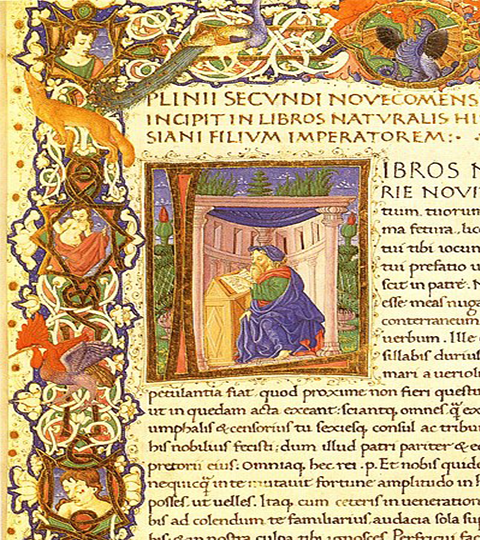 PLINII SECVNDI NOVECOMENS
INCIPIT IN LIBROS NATVRALIS HI
SIANI FILIVM IMPERATOREM:
IBROS N
RIE NOVI
tium. tuorum
ma fetura. lic
tui tibi iocun
tui prefatio u
scit in patte. N
esse meas nuga
conterraneum
uerbum. Ille
sillabis durius
mari a uerioli
petulantia fiat. quod proxume non fieri questu
ut in quedam acta exeant: sciantq omnes q̃ ex
umphalis & censorius tu sexiesq. consul ac tribun
his nobilius fecisti: dum illud patri pariter & eq
pretorii eius: Omniaq. hec rei .p. Et nobis quide
nequicq̃ in te mutauit fortune amplitudo in h
posses. ut uelles. Itaq. cum ceteris in ueneration
bis ad colendum te familiarius. audacia sola sup